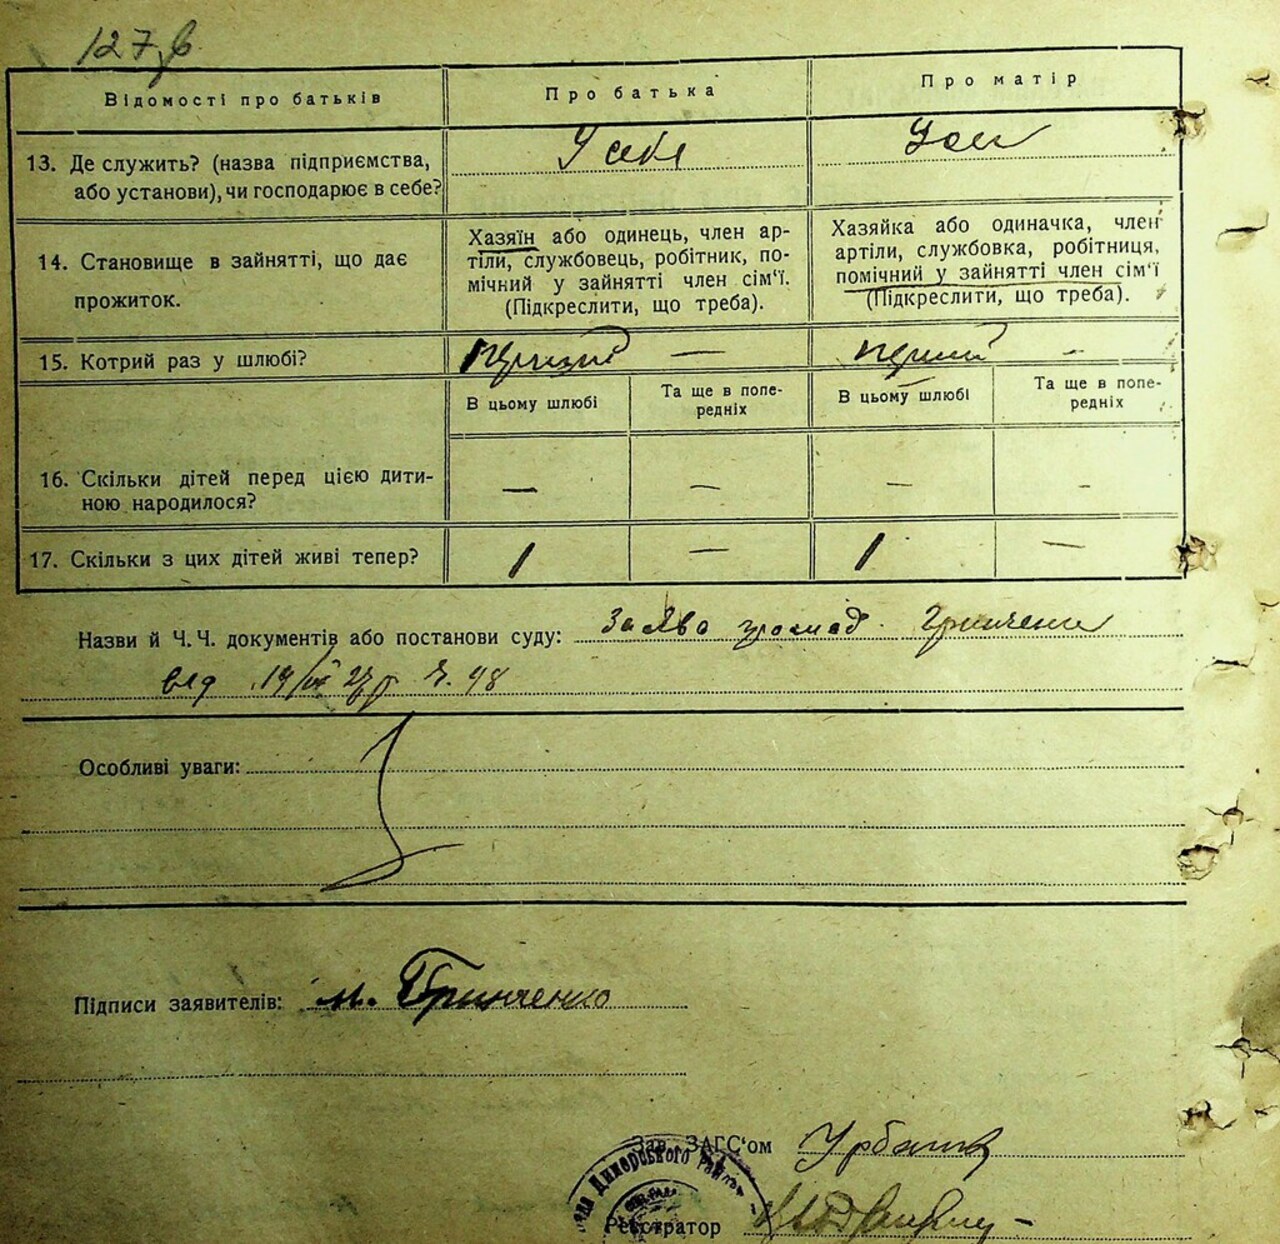 127
Відомості про батьків
Про батька
Про матір
13. Де служить? (назва підприємства,
або установи), чи господарює в себе?
У себе
14. Становище в зайнятті, що дає
прожиток.
Хазяїн або одинець, член ар-
тіли, службовець, робітник, по-
мічний у зайнятті член сім'ї.
(Підкреслити, що треба).
Хазяйка або одиначка, член
артіли, службовка, робітниця,
помічний у зайнятті член сім'ї
(Підкреслити, що треба).
15. Котрий раз у шлюбі?
перший —
перший -
В цьому шлюбі
Та ще в попе-
редніх
В цьому шлюбі
Та ще в попе-
редніх
16. Скільки дітей перед цією дити-
ною народилося?
— — — -
17. Скільки з цих дітей живі тепер?
1 — 1 —
Назви й Ч. Ч. документів або постанови суду: Заява громад. Гринченка
від 19 Ч. 48
Особливі уваги:
Підписи заявителів: М. Гринченко
Зав. ЗАГС'ом
Димерського
Реєстратор